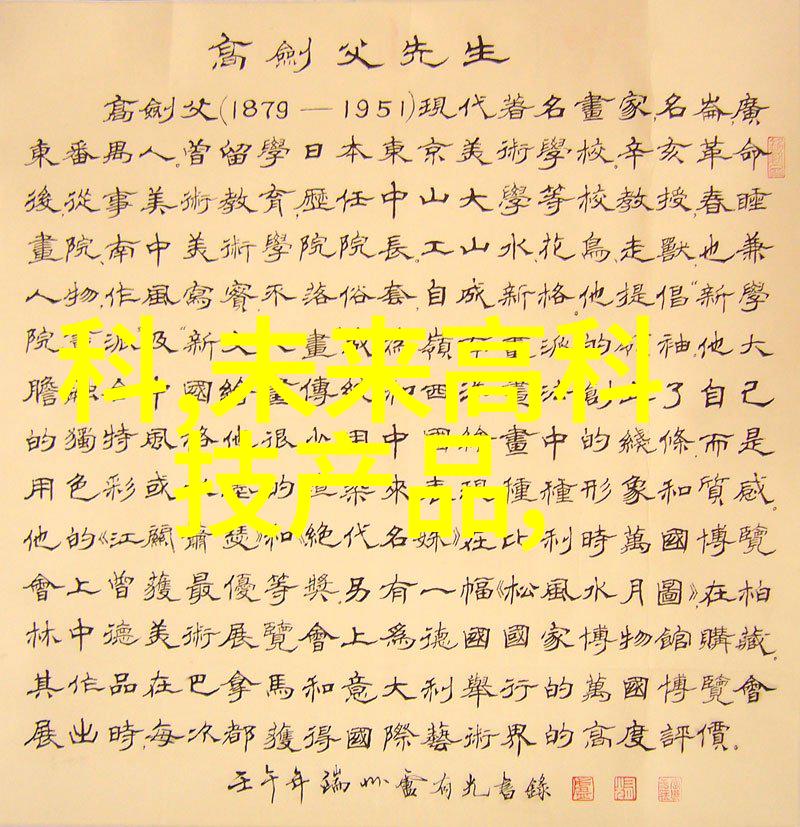 高劍父先生
高劍父(1879—1951)現代著名畫家,名崙,廣
東番禺人。曾留學日本東京美術學校.辛亥革命
後,從事美術教育,歷任中山大學等校教授,春睡
畫院,南中美術學院院長.工山水,花鳥,走獸,也兼
人物,作風寫實,不落俗套,自成新格。他提倡"新學
院畫派"及"新文人畫 為嶺 畫派的領袖.他大
膽融合中國繪畫傳統和西洋畫法,創 了自己
的獨特風格.他很少用中國繪畫中的綫條,而是
用色彩或水墨的渲染來表現種種形象和質感。
他的《江關蕭瑟》和《絕代名姝》在比利時萬國博覽
會上曾獲最優等獎.另有一幅《松風水月圖》,在柏
林中德美術展覽會上爲德國國家博物館購藏.
其作品在巴拿馬和意大利舉行的萬國博覽會
展出時,每次都獲得國際藝術界的高度評價。
壬午年瑞州盧有光書錄
科,未来高科
技产品,